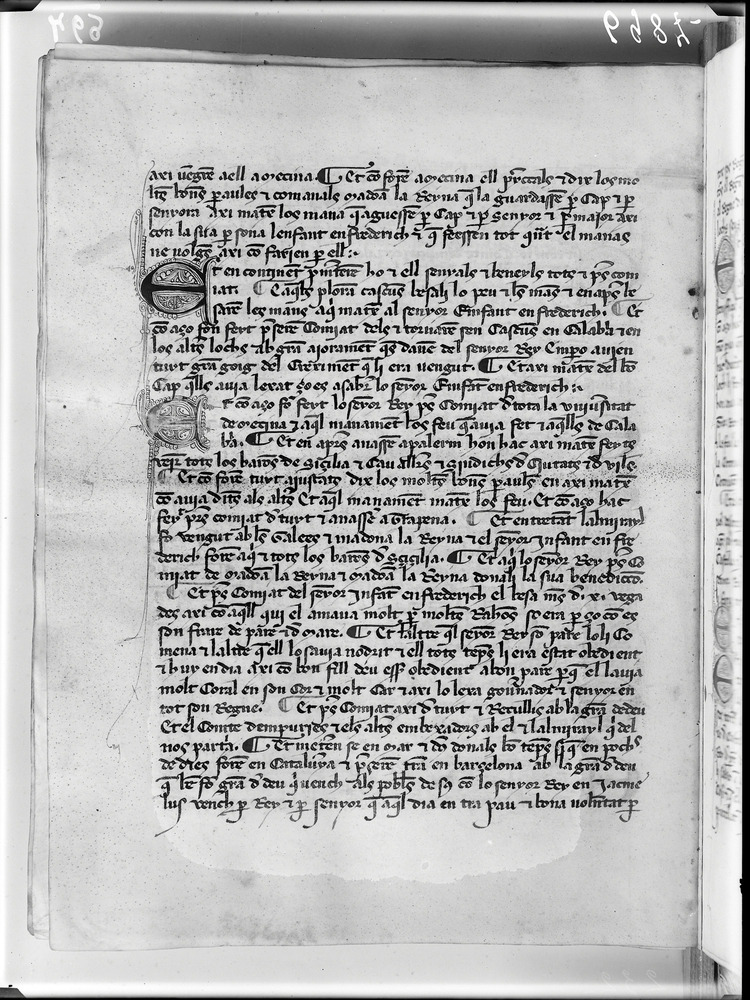 axi vengren a ell a mecina. Et com foren a mecina ell preycals e dix los mo
lts bones paraules e comanals madona la Reyna q la guardassen p Cap e p
senyora axi mateix los mana q aguessen p Cap e p Senyor e p major axi
con la sua p sona lenfant en frederich e q feessen tot quant el manas
ne volgues axi co farien p ell :.
Et en continent p meteren ho e ell senyals e beneyls tots e pres com
iat. E aqlls ploran cascus besali lo peu e les mans e en apres be
saren les mans aqi mateix al senyor Enfant en frederich. Et
co aço fon feyt p seren Comiat dels e tornaren sen Cascus en Calabra e en
los altres lochs ab gran ajorament qs dauen del senyor Rey En pere auien
tuyt gran goig del Creximent q li era vengut. Et axi mateix del bo
Cap qlls auia lexat ço es a saber lo senyor Enfant en frederich :.
Et co aço fo feyt lo senyor Rey pres Comiat d tota la vniuersitat
de mecina e aql manament los feu q auia fet a aqlls de Cala
bra. Et en apres anassen a palerm hon hac axi mateix feyts
venir tots los barons de Sicilia e Cauallers e Sindichs d Ciutats e d viles
Et co foren tuyt ajustats dix los moltes bones paraules en axi mateix
co auia dites als altres Et aql manament mateix los feu. Et co aço hac
feyt pres comiat d tuyt e anassen a Trapena. Et entretant lalmirayl
fo vengut ab les Galees e madona la Reyna e el senyor Infant en fre
derich foren aqi e tots los barons d Sicilia. Et aqi lo senyor Rey pres Co
miat de madona la Reyna e madona la Reyna donali la sua benediccio.
Et pres Comiat del senyor Infant en frederich el besa mes d .x. vega
des axi co aqll qui el amaua molt p moltes Rahons so era p ço co es
son frare de pare e d mare. Et laltre ql senyor Rey so pare loli Co
mena e laltre q ell lo sauia nodrit e ell tots temps li era estat obedient
e huy en dia axi co bon fill deu esser obedient a bon pare p q el lauia
molt Coral en son Cor e molt Car e axi lo lexa gouernador e senyor en
tot son Regne. Et pres Comiat axi d tuyt e Recullis ab la gracia de deu
Et el Comte dempuries e els altres embexadors ab el e lalmirayl q del
nos parti. Et meteren se en mar e deus donals bo temps si q en pochs
de dies foren en Catalunya e preseren terra en barcelona ab la gracia d deu
q be fo gracia d deu q vench als pobles de sus co lo senyor Rey en Jacme
lus vench p Rey e p senyor q aql dia en tra pau e bona volentat p